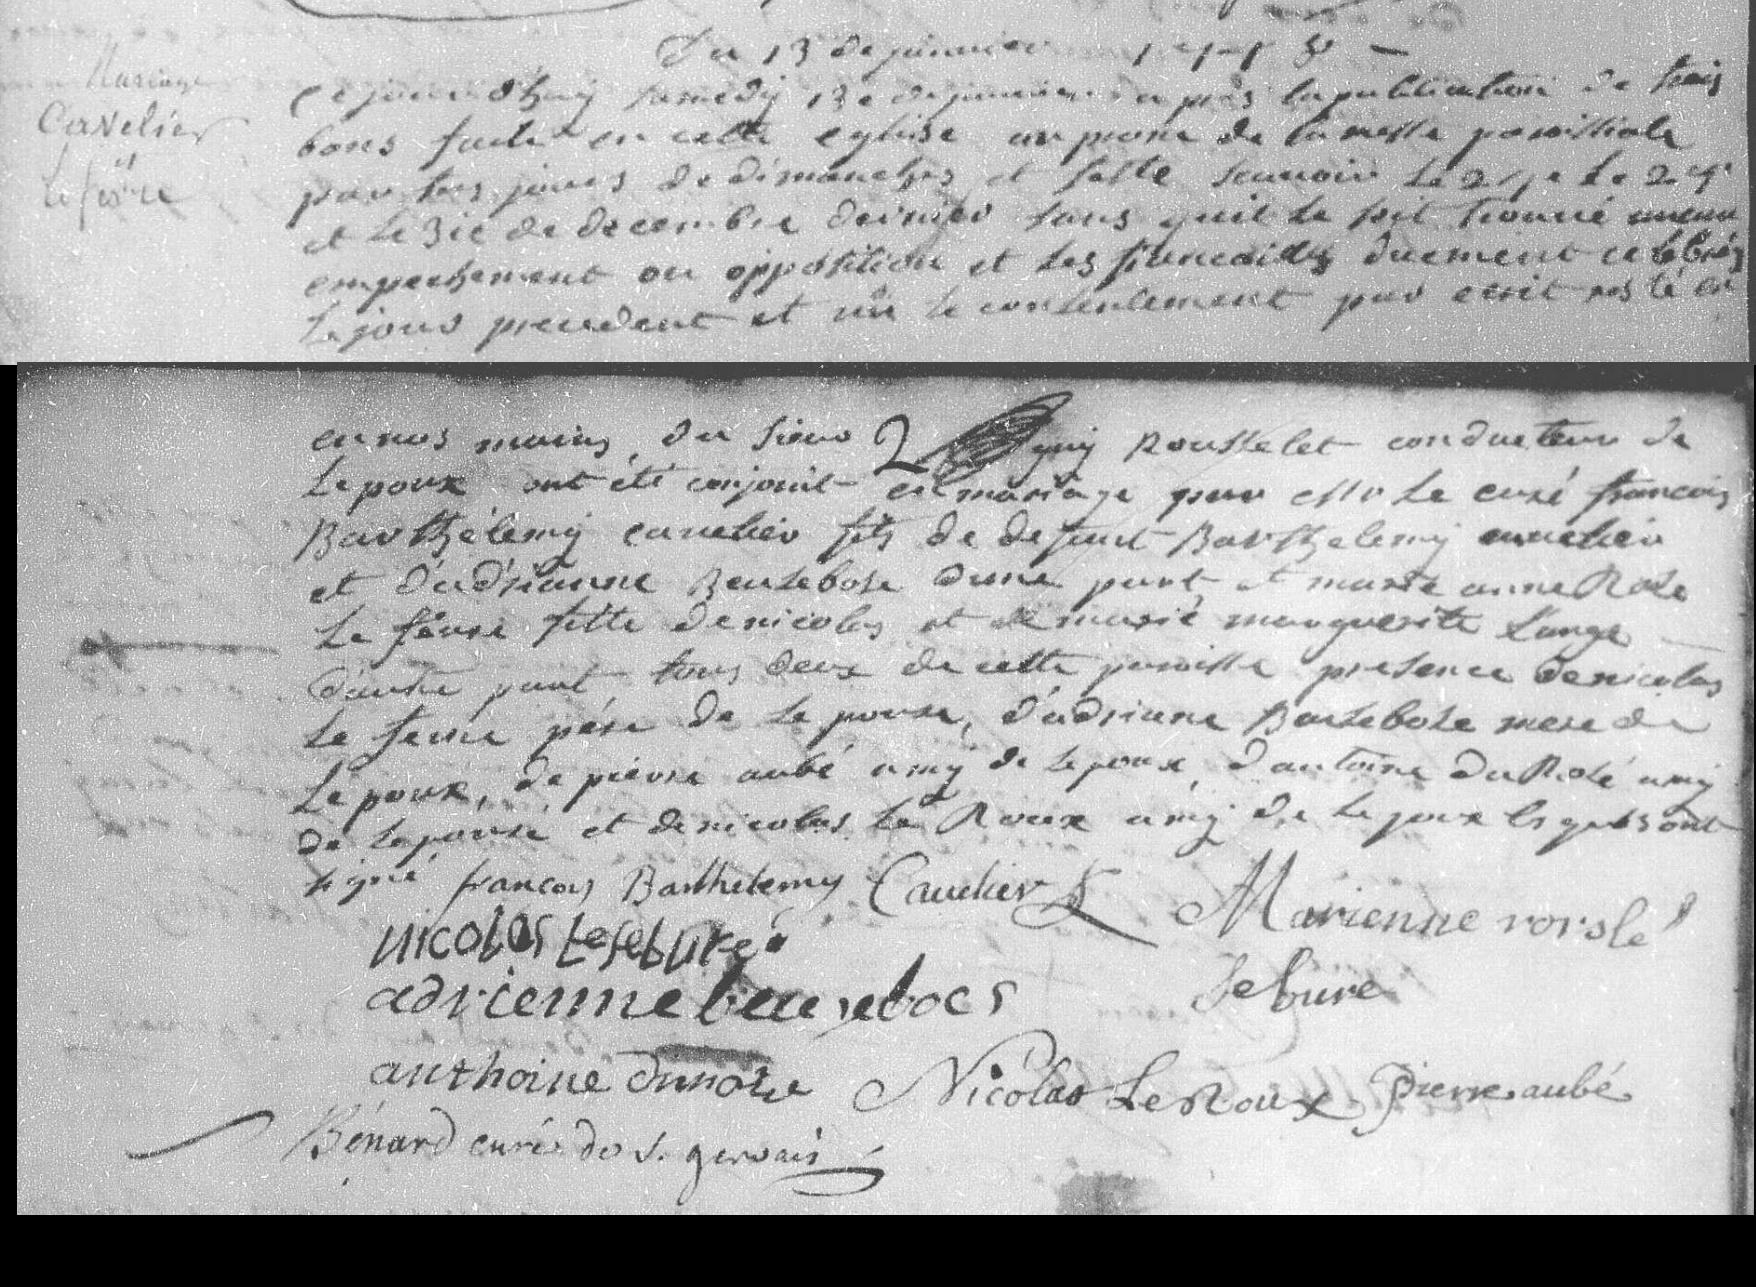 Du 13 de janvier
Mariage
Cavelier
et
lefevre
Ce jourdhuy samedy 13e de janvier apres la publication de trois
bans faite en cette eglise au prone de la messe paroissiale
par trois jours de dimanches et feste scavoir le 24e le
et le 31e de decembre dernier sans quil se soit trouvé aucun
empechement ou opposition et les fiancailles duement celebrées
le jour precedent et vû le consentement par ecrit resté en
en nos mains du sieur Rousselet conducteur de
lepoux ont été conjoint en mariage par le curé francois
Barthélemy cavelier fils de defunt Barthelemy cavelier
et d'adrianne Beusebose dune part et marie anne Rose
le févre fille de nicolas et de marie marguerite Lange
dautre part tous deux de cette paroisse presence de nicolas
le fevre pére de le pouse, d'adrianne Beusebose mere de
le poux, de pierre aubé amy de lepoux, d'antoine du Rosé amy
de lepouse et de nicolas le Roux amy de le poux lesquels ont
signé francois Barthelemy Cavelier Marienne rorsle
nicolas Lefebure
adrienne beusebocs febure
anthoine durose Nicolas Le Roux Pierre aubé
Bénard curé de s. gervais